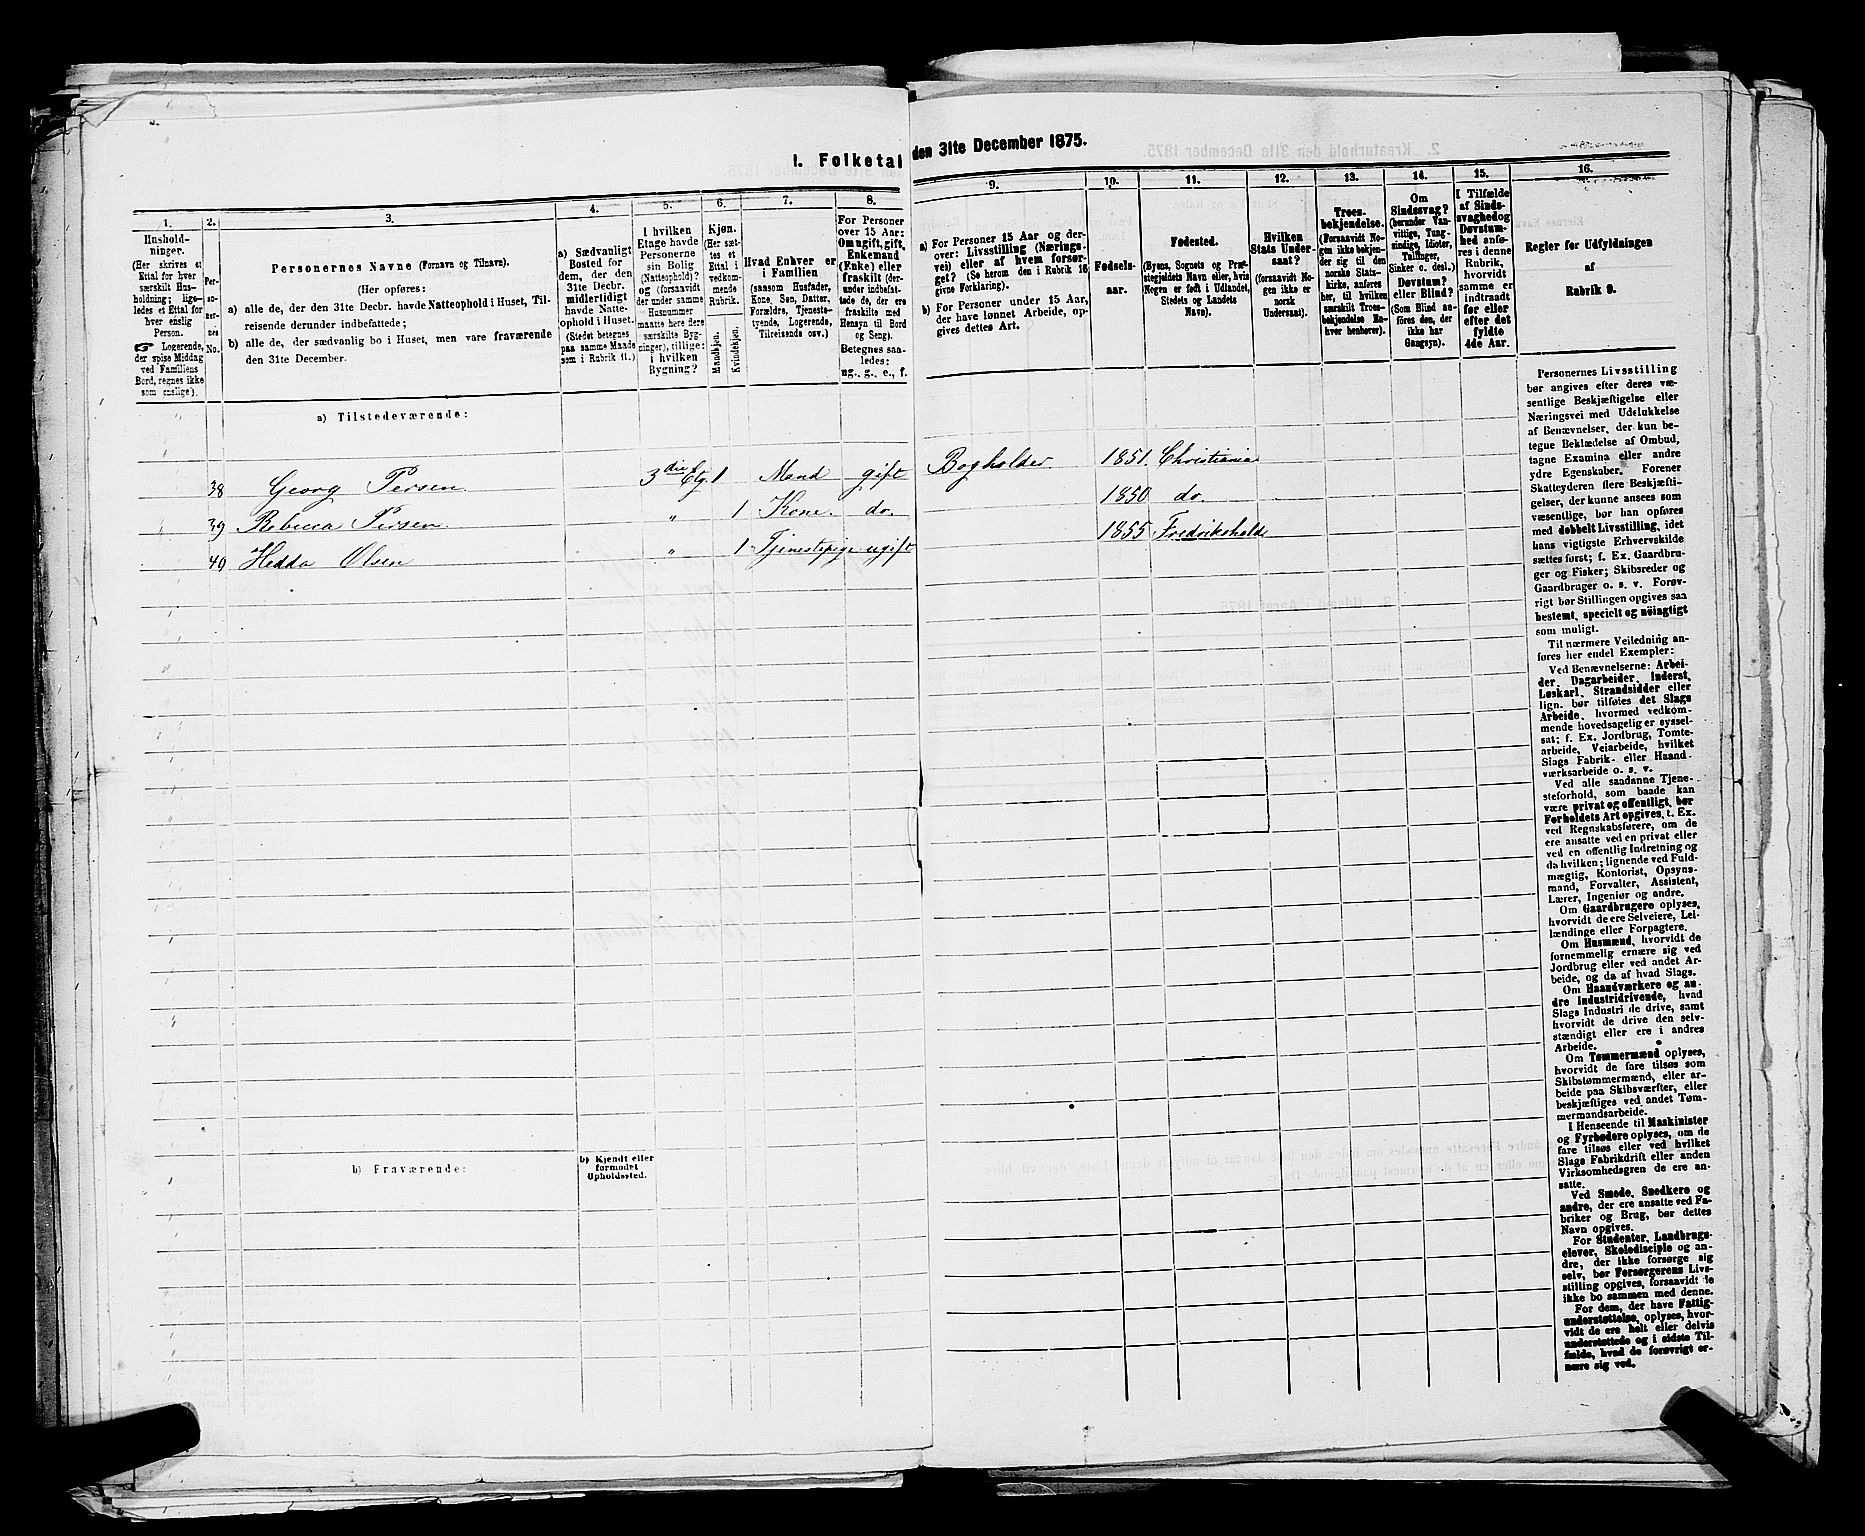 1. Folketal
den 31te December 1875.
1.
Husholdninger.
(Her skrives et Ettal for hver særskilt Husholdning; ligeledes et Ettal for hver enslig Person.
Logerende, der spise Middag ved Familiens Bord, regnes ikke som enslige).
2.
Personernes No.
3.
Personernes Navne (Fornavn og Tilnavn).
(Her opføres:
a) alle de, der den 31te Decbr. havde Natteophold i Huset, Tilreisende derunder indbefattede;
b) alle de, der sædvanlig bo i Huset, men vare fraværende den 31te December.
4.
a) Sædvanligt Bosted for dem, der den 31te Decbr. midlertidigt havde Natteophold i Huset.
(Stedet betegnes paa samme Maade som i Rubrik 11.)
5.
I hvilken Etage havde Personerne sin Bolig (Natteophold)? og (forsaavidt der under samme Husnummer maatte høre flere særskilte Bygninger), tillige: i hvilken Bygning?
6.
Kjøn.
(Her sættes et Ettal i vedkommende Rubrik.
Mandkjøn.
Kvindekjøn.
7.
Hvad Enhver er i Familien
(saasom Husfader, Kone, Søn, Datter, Forældre, Tjenestetyende, Logerende, Tilreisende osv.)
8.
For Personer over 15 Aar: Om ugift, gift, Enkemand (Enke) eller fraskilt (derunder indbefattede de, der ere fraskilte med Hensyn til Bord og Seng).
Betegnes saaledes: ug., g., e., f.
9.
a) For Personer 15 Aar og derover: Livsstilling (Næringsvei) eller af hvem forsørget? (Se herom den i Rubrik 16 givne Forklaring).
b) For Personer under 15 Aar, der have lønnet Arbeide, opgives dettes Art.
10.
Fødselsaar.
11.
Fødested.
(Byens, Sognets og Præstegjeldets Navn eller, hvis Nogen er født i Udlandet, Stedets og Landets Navn).
12.
Hvilken Stats Undersaat?
(forsaavidt Nogen ikke er norsk Undersaat).
13.
Troesbekjendelse.
(Forsaavidt Nogen ikke bekjender sig til den norske Statskirke, anføres her, til hvilken særskilt Troesbekjendelse Enhver henhører).
14.
Om Sindssvag?
(herunder Vanvittige, Tungsindige, Idioter, Tullinger, Sinker o. desl.)
Døvstum? eller Blind?
(Som Blind anføres den, der ikke har Gangsyn).
15.
I Tilfælde af Sindssvaghed og Døvstumhed anføres i denne Rubrik, hvorvidt samme er indtraadt før eller efter det fyldte 4de Aar.
16.
Regler for Udfyldningen af Rubrik 9.
a) Tilstedeværende:
38 Georg Persen 3die Etg. 1 Mand gift Bogholder 1851. Christiania
39 Rebecca Persen. " 1 Kone. do. 1850 do.
40 Hedda Olsen " 1 Tjenestepige ugift 1855 Fredrikshald
b) Fraværende:
b) Kjendt eller formodet Opholdssted.
Personernes Livsstilling
bør angives efter deres væ-
sentlige Beskjæftigelse eller
Næringsvei med Udelukkelse
af Benævnelser, der kun be-
tegne Beklædelse af Ombud,
tagne Examina eller andre
ydre Egenskaber. Forener
Skatteyderen flere Beskjæfti-
gelser, der kunne ansees som
væsentlige, bør han opføres
med dobbelt Livsstilling, idet
hans vigtigste Erhvervskilde
sættes først; f. Ex. Gaardbru-
ger og Fisker; Skibsreder og
Gaardbruger o. s. v. Forøv-
rigt bør Stillingen opgives saa
bestemt, specielt og nöiagtigt
som muligt.
Til nærmere Veiledning an-
føres her endel Exempler:
Ved Benævnelserne: Arbei-
der, Dagarbeider, Inderst,
Løskarl, Strandsidder eller
lign. bør tilføies det Slags
Arbeide, hvormed vedkom-
mende hovedsagelig er syssel-
sat; f. Ex. Jordbrug, Tomte-
arbeide, Veiarbeide, hvilket
Slags Fabrik- eller Haand-
værksarbeide o. s. v.
Ved alle saadanne Tjene-
steforhold, som baade kan
være privat og offentligt, bør
Forholdets Art opgives, t. Ex.
ved Regnskabsførere, om de
ere ansatte ved en privat eller
ved en offentlig Indretning og
da hvilken; lignende ved Fuld-
mægtig, Kontorist, Opsyns-
mand, Forvalter, Assistent,
Lærer, Ingeniør og andre.
Om Gaardbrugere oplyses,
hvorvidt de ere Selveiere, Lei-
lændinge eller Forpagtere.
Om Husmænd, hvorvidt de
fornemmelig ernære sig ved
Jordbrug eller ved andet Ar-
beide, og da af hvad Slags.
Om Haandværkere og an-
dre Industridrivende, hvad
Slags Industri de drive, samt
hvorvidt de drive den selv-
stændigt eller ere i andres
Arbeide.
Om Tømmermænd oplyses,
hvorvidt de fare tilsøs som
Skibstømmermænd, eller ar-
beide paa Skibsværfter, eller
beskjæftiges ved andet Tøm-
mermandsarbeide.
I Henseende til Maskinister
og Fyrbødere oplyses, om de
fare tilsøs eller ved hvilket
Slags Fabrikdrift eller anden
Virksomhedsgren de ere an-
satte.
Ved Smede, Snedkere og
andre, der ere ansatte ved Fa-
briker og Brug, bør dettes
Navn opgives.
For Studenter, Landbrugs-
elever, Skoledisciple og an-
dre, der ikke forsørge sig
selv, bør Forsørgerens Livs-
stilling opgives, forsaavidt de
ikke bo sammen med denne.
For dem, der have Fattig-
understøttelse, oplyses, hvor-
vidt de ere helt eller delvis
understøttede og i sidste Til-
fælde, hvad de forøvrigt er-
nære sig ved.